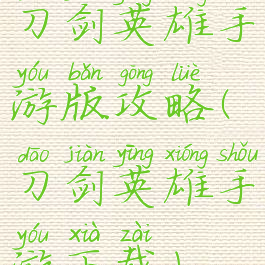 刀剑英雄手
yóu bǎn gōng lüè
游版攻略(
dāo jiàn yīng xióng shǒu
刀剑英雄手
yóu xià zài
游下载)